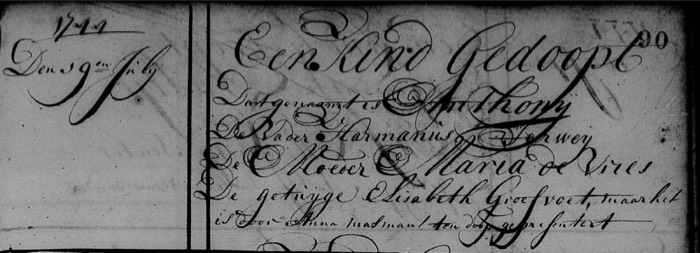 1744
Den 19en July
90
Een Kind Gedoopt
Dat genaamt is Anthony
De Vader Harmanus Terwey
De Moeder Maria de Vries
De getuyge Elisabeth Groefvoet, maar het
is door Anna masman ten doop gepresentert